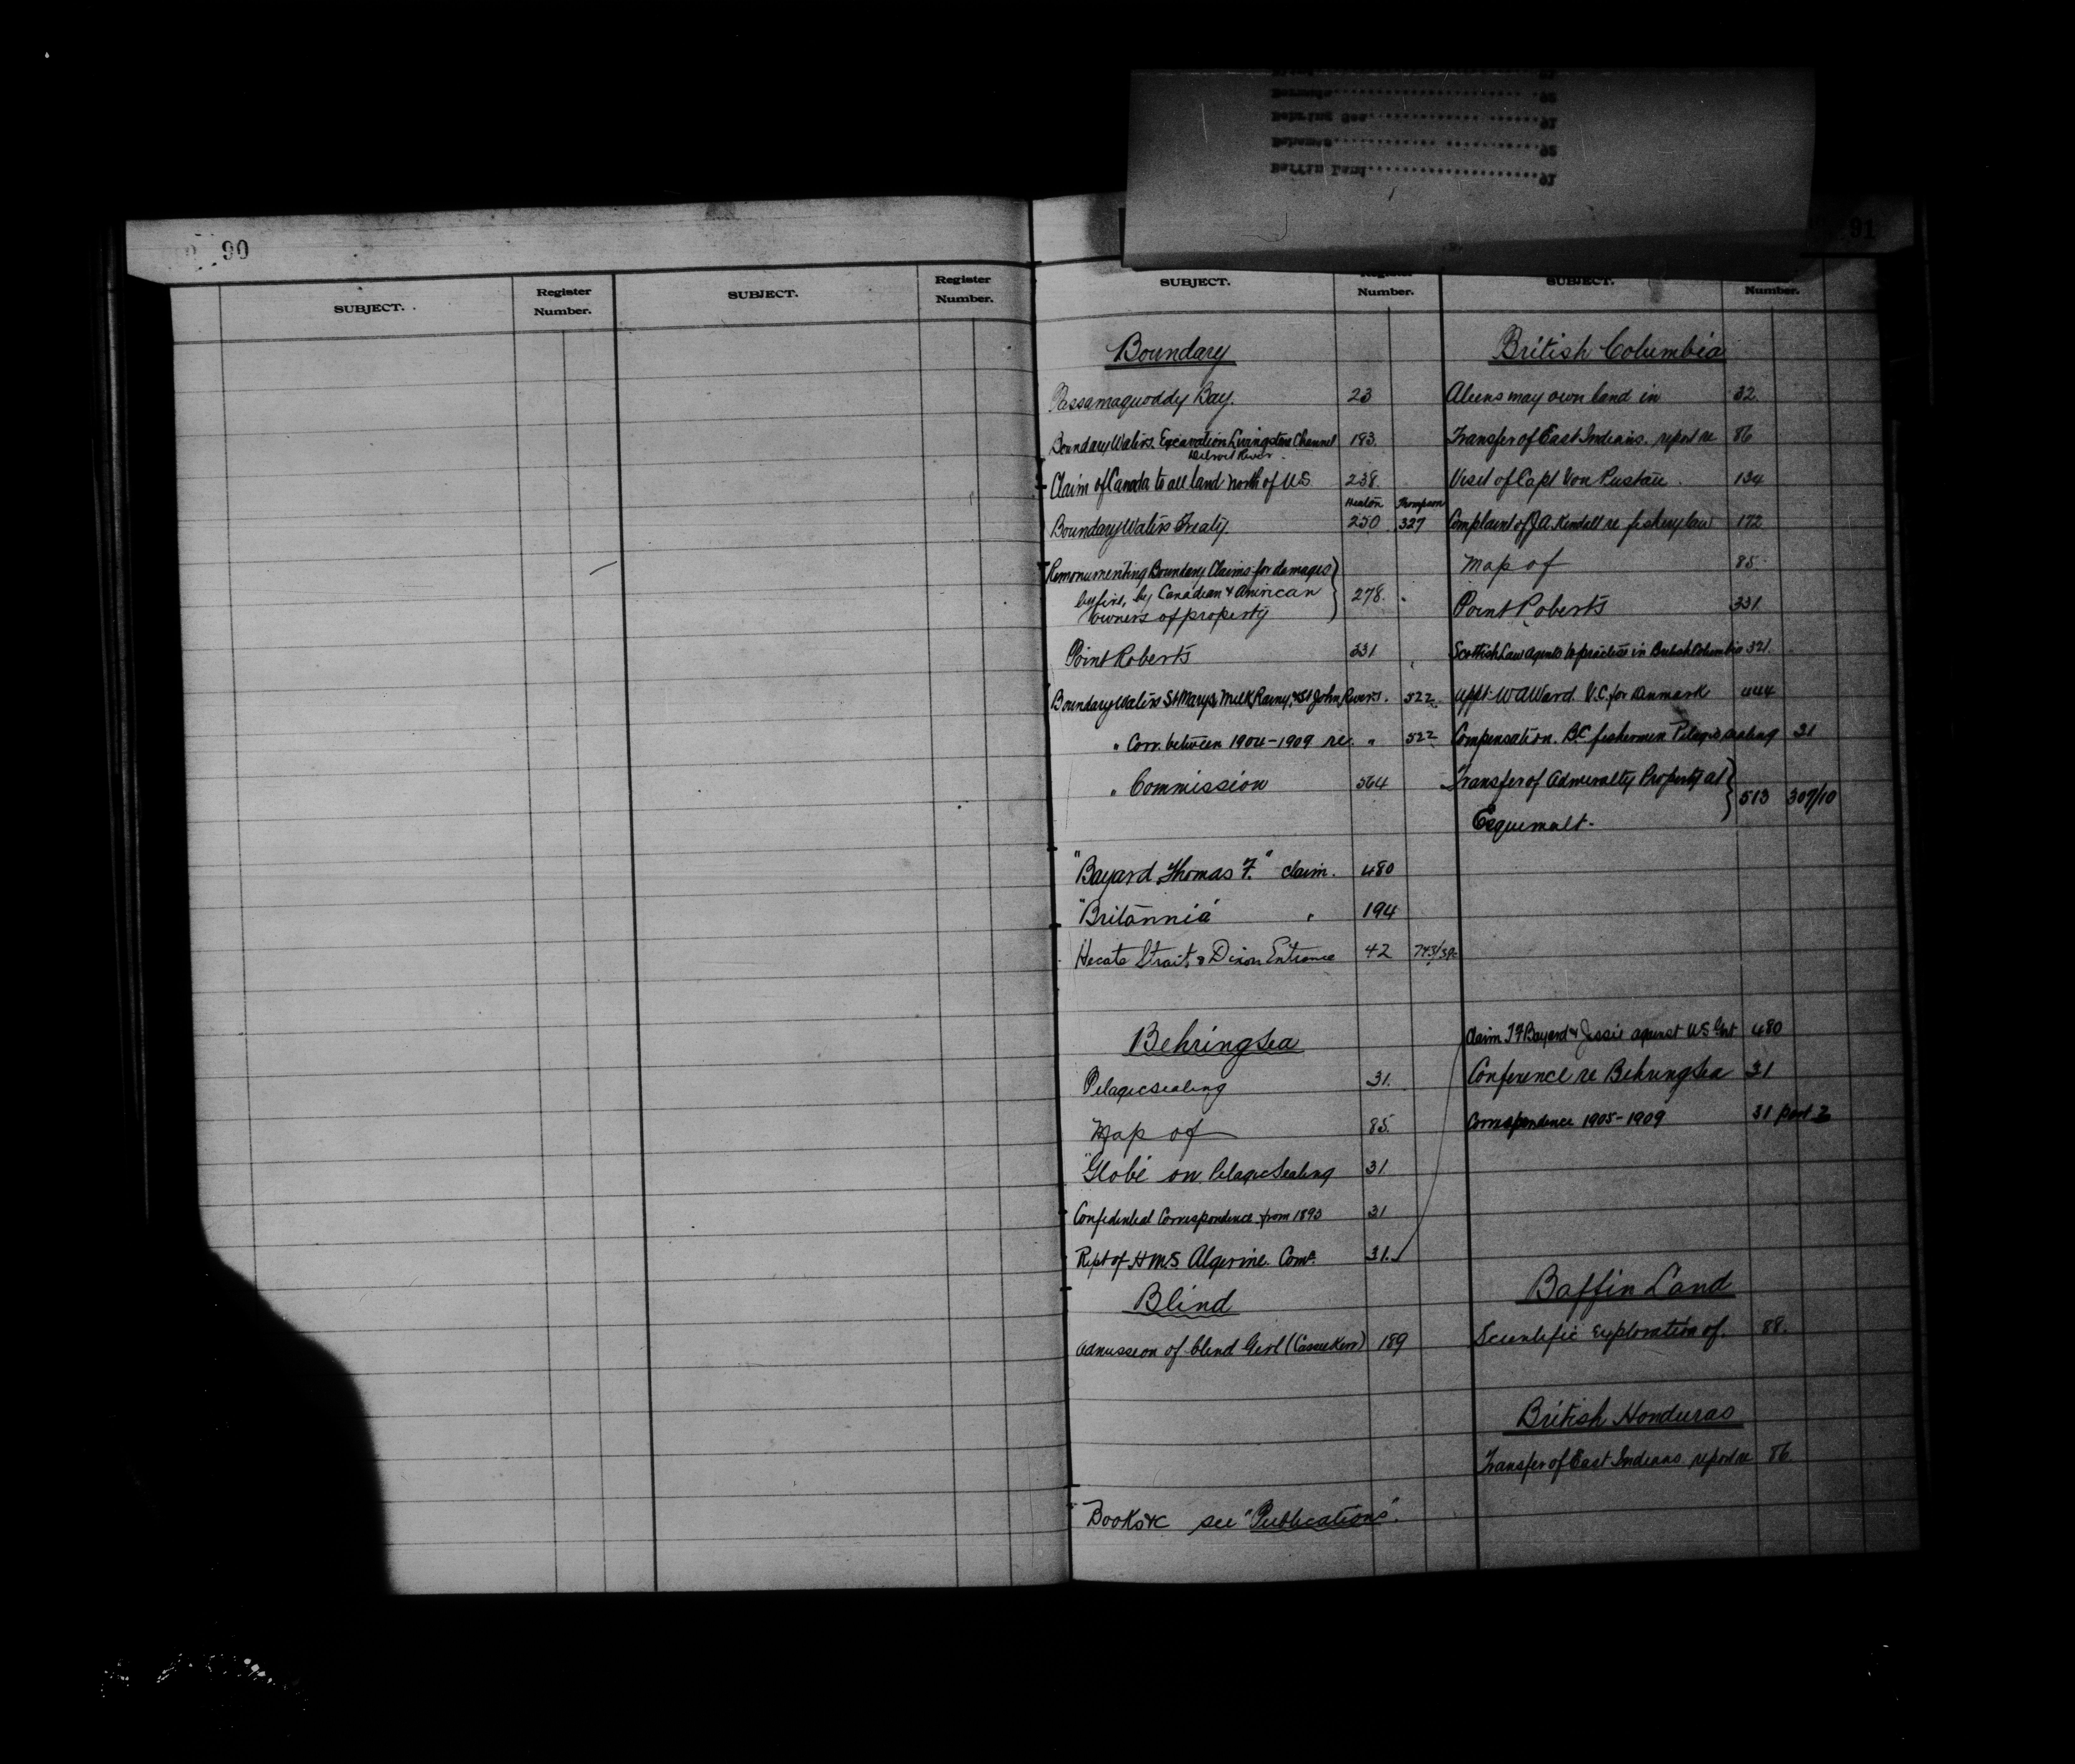 90
SUBJECT.
Register
Number.
SUBJECT.
Register
Number.
Bermuda 92
Behring Sea 91
Bahamas 92
Baffin Land 91
91
SUBJECT.
Register
Number.
SUBJECT.
Number.
Boundary
Passamaquoddy Bay. 23
Boundary Waters. Excavation Livingstone Channel 193.
Detroit River.
Claim of Canada to all land north of U.S. 238.
Heaton Thompson
Boundary Waters Treaty. 250. 327
Remonumenting Boundary Claims for damages
by fire, by Canadian & American 278.
owners of property
Point Roberts 331
Boundary Waters St Mary's, Milk, Rainy, & St John Rivers. 522.
" Corr. between 1904-1909 re. " 522
" Commission 564
"Bayard, Thomas F." claim. 480
"Britannia" " 194
Hecate Strait, & Dixon Entrance 42 743/38c
Behring Sea
Pelagic sealing 31.
Map of 85.
"Globe" on Pelagic Sealing 31
Confidential Correspondence from 1893 31
Rept of H.M.S. Algerine. Comr. 31.
Blind
Admission of blind Girl (Cassie Kerr) 189
Books &c see "Publications".
British Columbia
Aliens may own land in 32.
Transfer of East Indians. report re 86
Visit of Capt Von Pustau. 134
Complaint of J.A. Kendall re fishery law 172
Map of 85.
Point Roberts 331
Scottish Law agents to practice in British Columbia 321.
Appt. W A Ward. V.C. for Denmark 444
Compensation. B.C. fishermen Pelagic sealing 31
Transfer of Admiralty Property at
Esquimalt. 513 309/10
Claim T F Bayard & Jessie against U S Govt 480
Conference re Behring Sea 31
Correspondence 1905-1909 31 part 2
Baffin Land
Scientific exploration of. 88.
British Honduras
Transfer of East Indians report re 86.